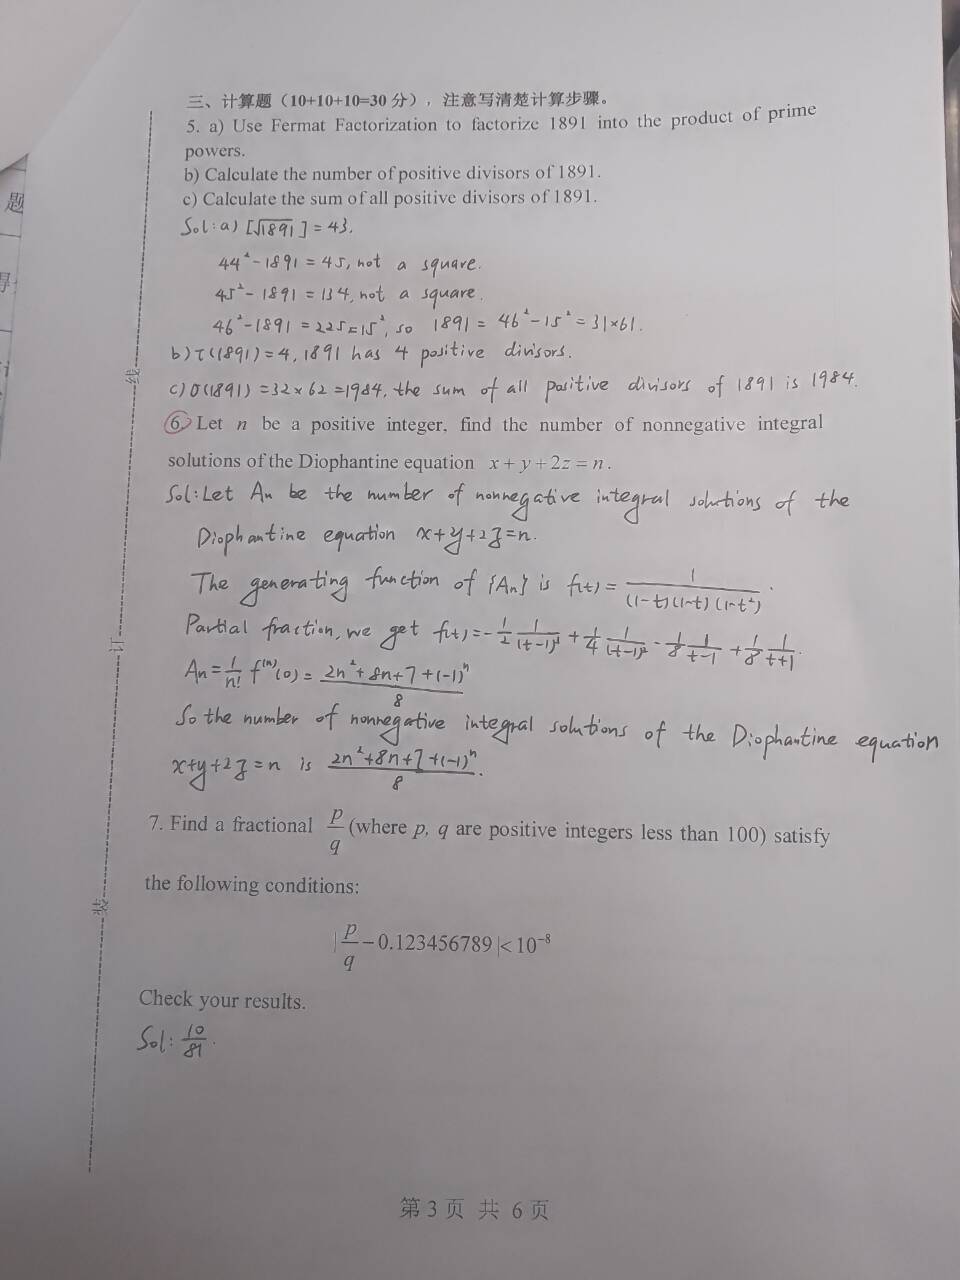 三、计算题（10+10+10=30 分），注意写清楚计算步骤。
5. a) Use Fermat Factorization to factorize 1891 into the product of prime
powers.
b) Calculate the number of positive divisors of 1891.
c) Calculate the sum of all positive divisors of 1891.
Sol: a) [√1891] = 43.
44² - 1891 = 45, not a square.
45² - 1891 = 134, not a square.
46² - 1891 = 225 = 15², so 1891 = 46² - 15² = 31×61.
b) τ(1891) = 4, 1891 has 4 positive divisors.
c) σ(1891) = 32×62 = 1984, the sum of all positive divisors of 1891 is 1984.
6. Let n be a positive integer, find the number of nonnegative integral
solutions of the Diophantine equation x + y + 2z = n.
Sol: Let An be the number of nonnegative integral solutions of the
Diophantine equation x+y+2z=n.
The generating function of {An} is f(t) = 1/((1-t)(1-t)(1-t²)).
Partial fraction, we get f(t) = -1/2 1/(t-1)³ + 1/4 1/(t-1)² - 1/8 1/(t-1) + 1/8 1/(t+1).
An = 1/n! f⁽ⁿ⁾(0) = (2n²+8n+7+(-1)ⁿ)/8
So the number of nonnegative integral solutions of the Diophantine equation
x+y+2z=n is (2n²+8n+7+(-1)ⁿ)/8.
7. Find a fractional p/q (where p, q are positive integers less than 100) satisfy
the following conditions:
|p/q - 0.123456789| < 10⁻⁸
Check your results.
Sol: 10/81.
第 3 页 共 6 页
题